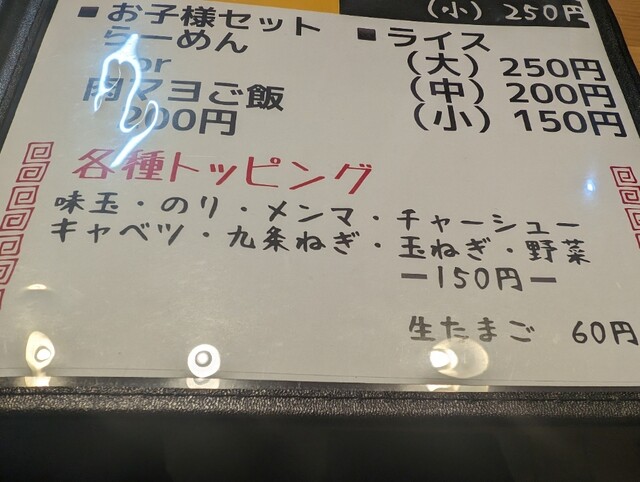 (小) 250円
■お子様セット
らーめん
or
肉マヨご飯
200円
■ライス
(大) 250円
(中) 200円
(小) 150円
各種トッピング
味玉・のり・メンマ・チャーシュー
キャベツ・九条ねぎ・玉ねぎ・野菜
ー150円ー
生たまご 60円